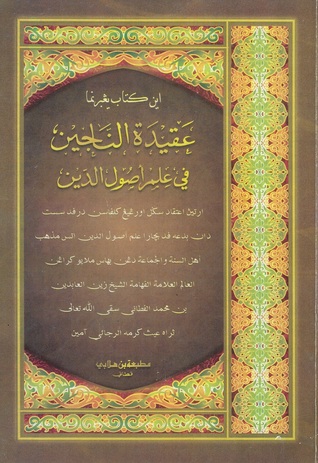 اين كتاب يڠبرنما
عقيدة الناجين
في علم أصول الدين
ارتيڽ اعتقاد سكل اورڠ يڠ كلفاسن در فد سست
دان بدعه فد بچار علم اصول الدين اتس مذهب
أهل السنة والجماعة دڠن بهاس ملايو كراڠن
العالم العلامة الفهامة الشيخ زين العابدين
بن محمد الفطاني سقى الله تعالى
ثراه غيث كرمه الرجائي آمين
مطبعة بن هلابي
فطاني